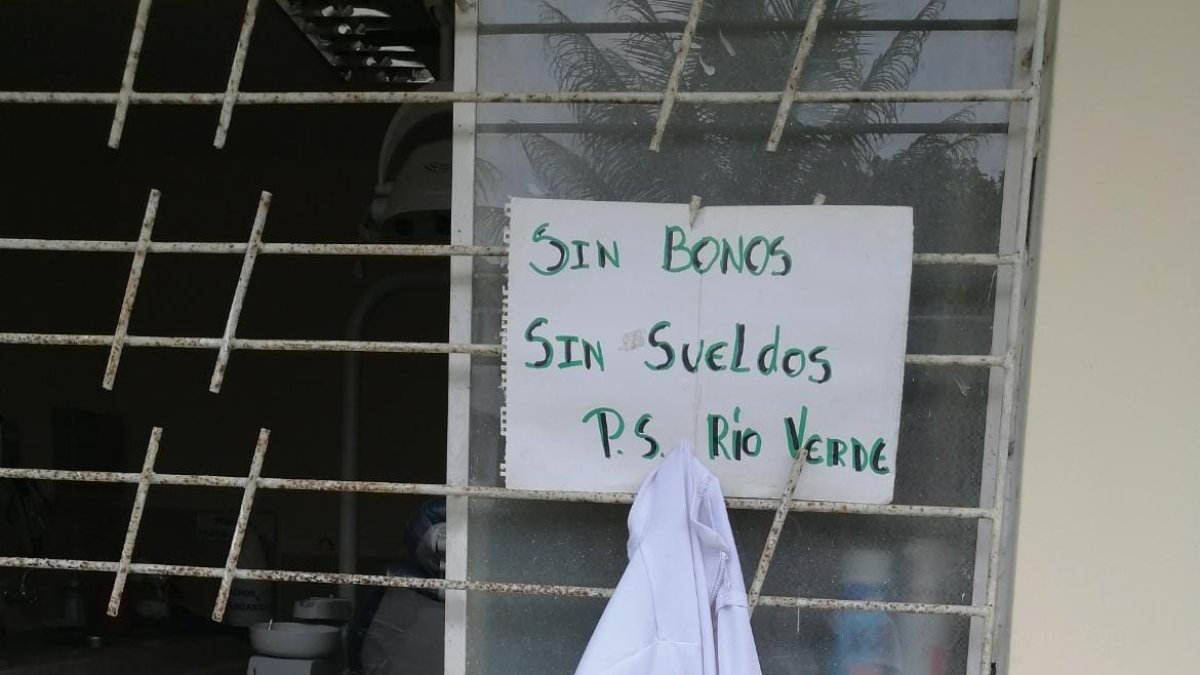 SIN BONOS
SIN SUELdOS
P.S. RíO VERDE